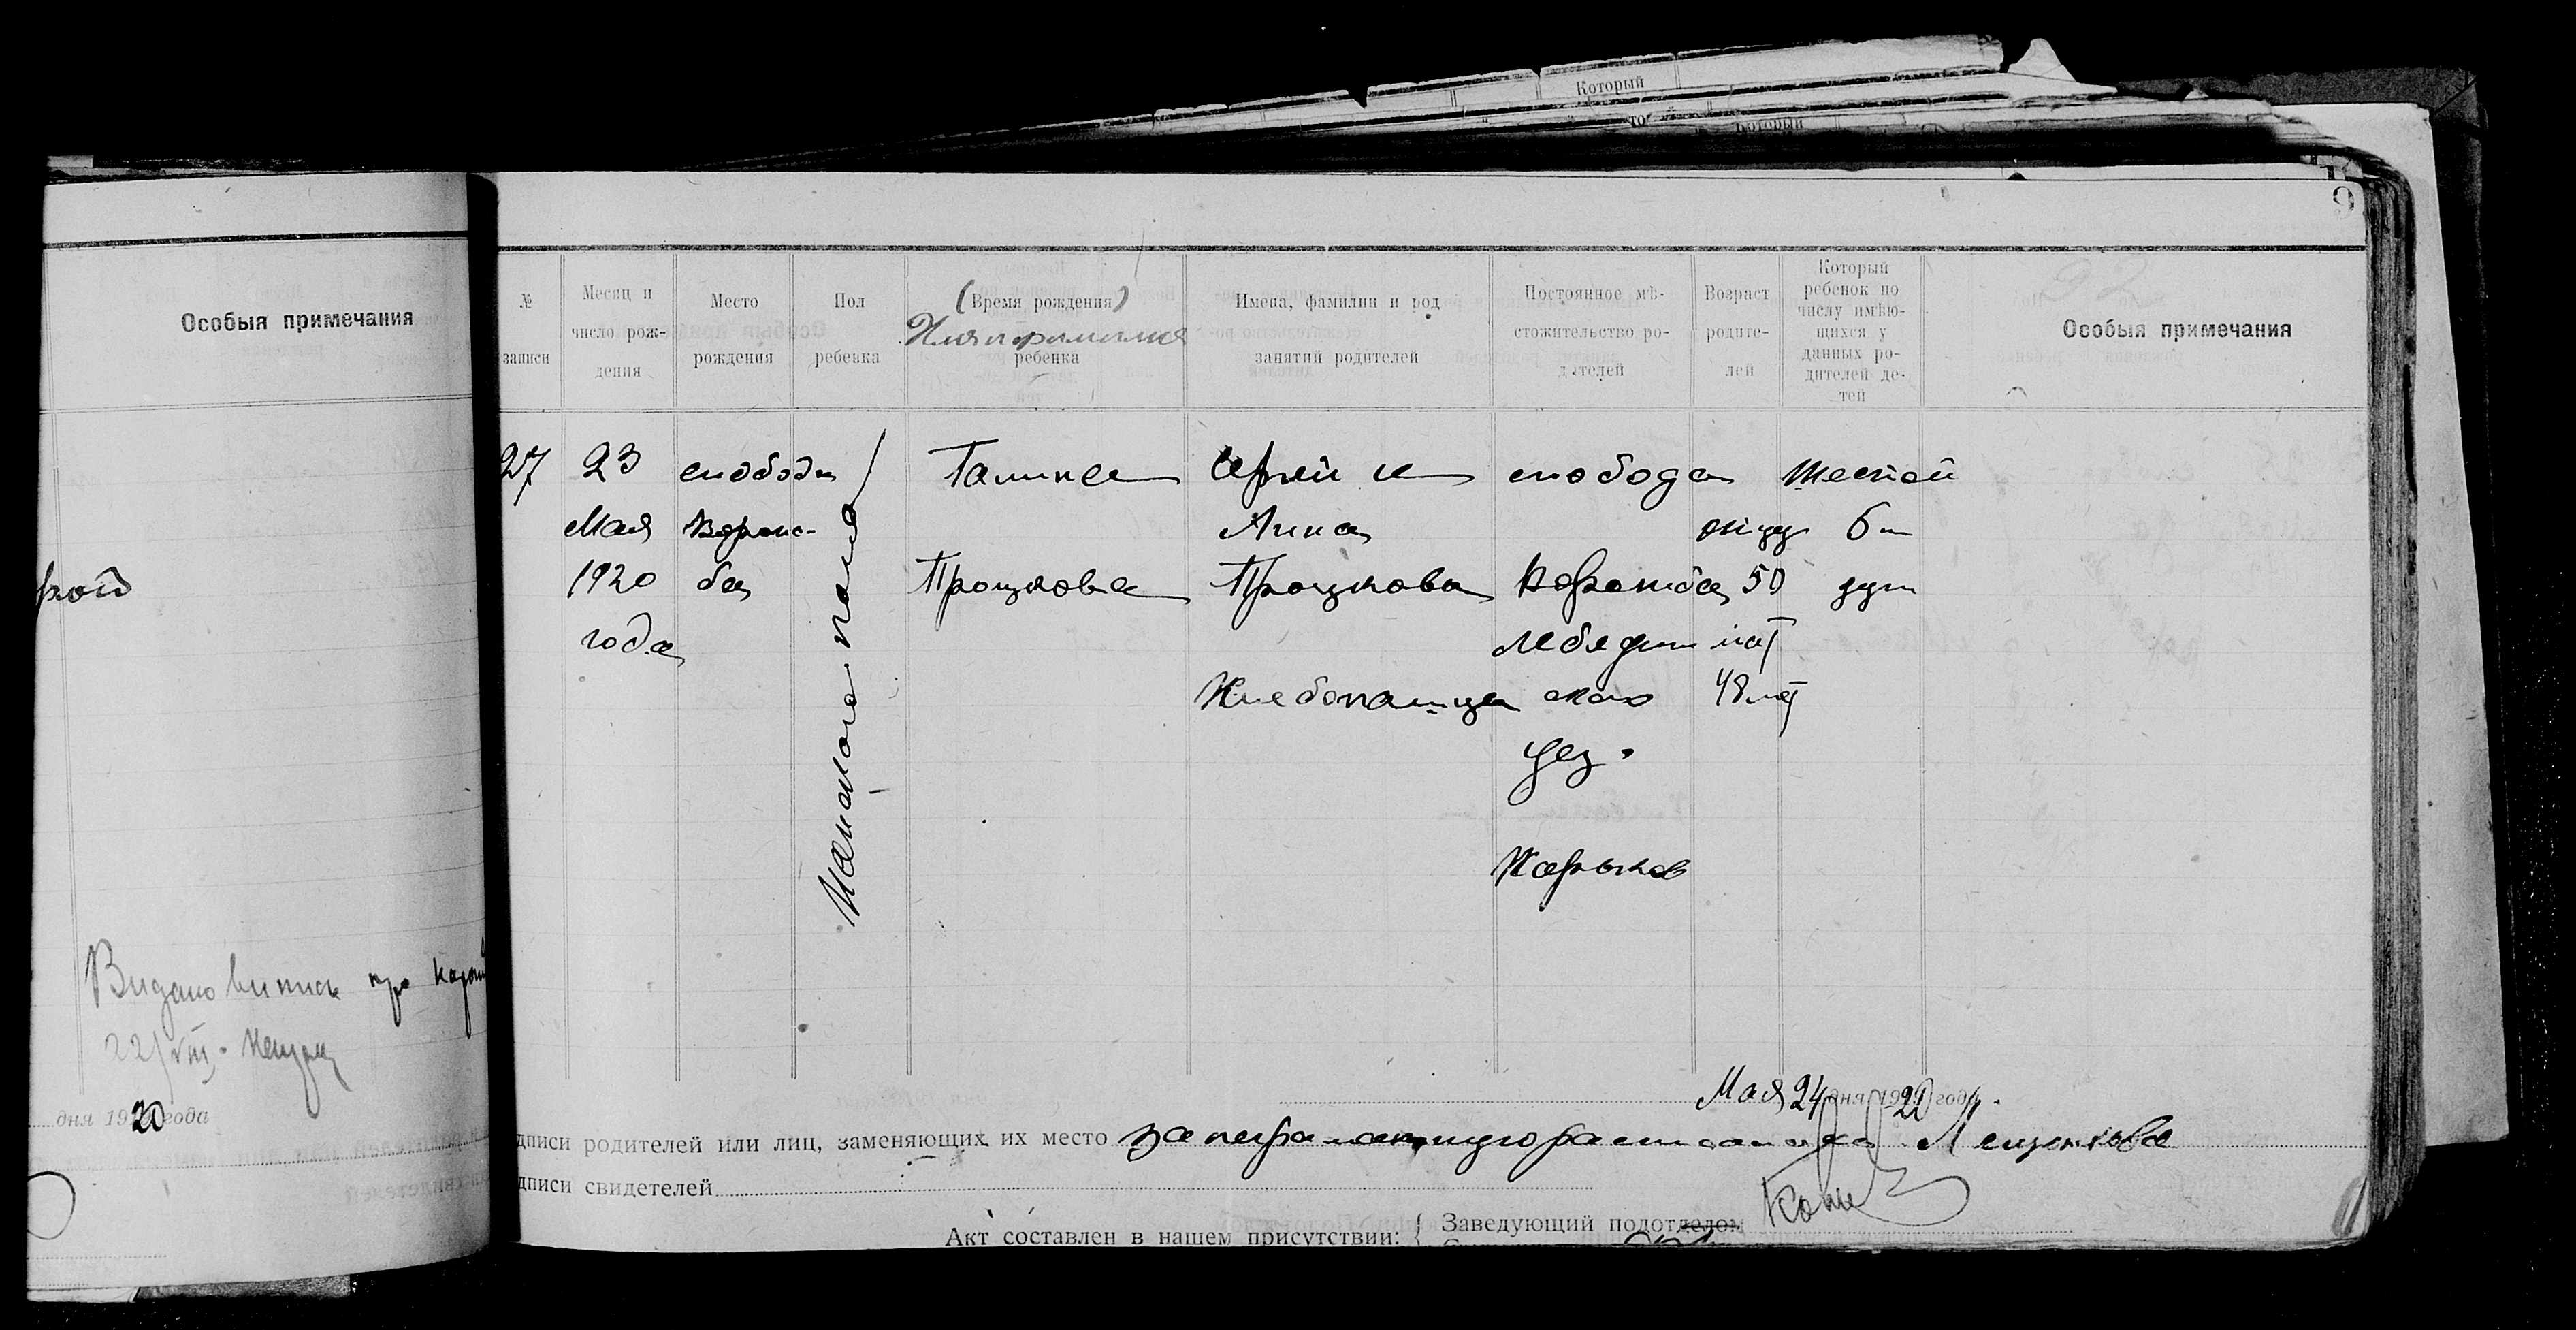 Который
Который
9
Особыя примечания
№ записи
Месяц и число рождения
Место рождения
Пол ребенка
(Время рождения)
Имя и фамилия
ребенка
Имена, фамилии и род занятий родителей
Постоянное мѣстожительство родителей
Возраст родителей
Который ребенок по числу имѣющихся у данных родителей детей
Особыя примечания
27
23
Мая
1920
года
слобода
Ворож-
ба
Женского пола
Галина
Процкова
Анна
Процкова
Хлебопашцы
слобода
Ворожба
Лебедин
ского
уез.
Харьков
отцу
50
лет
48 лет
шестой
дня 1920 года
Мая 24 дня 1920 года.
дписи родителей или лиц, заменяющих их место за неграмотную расписался
дписи свидетелей
Акт составлен в нашем присутствии: { Заведующий подотделом